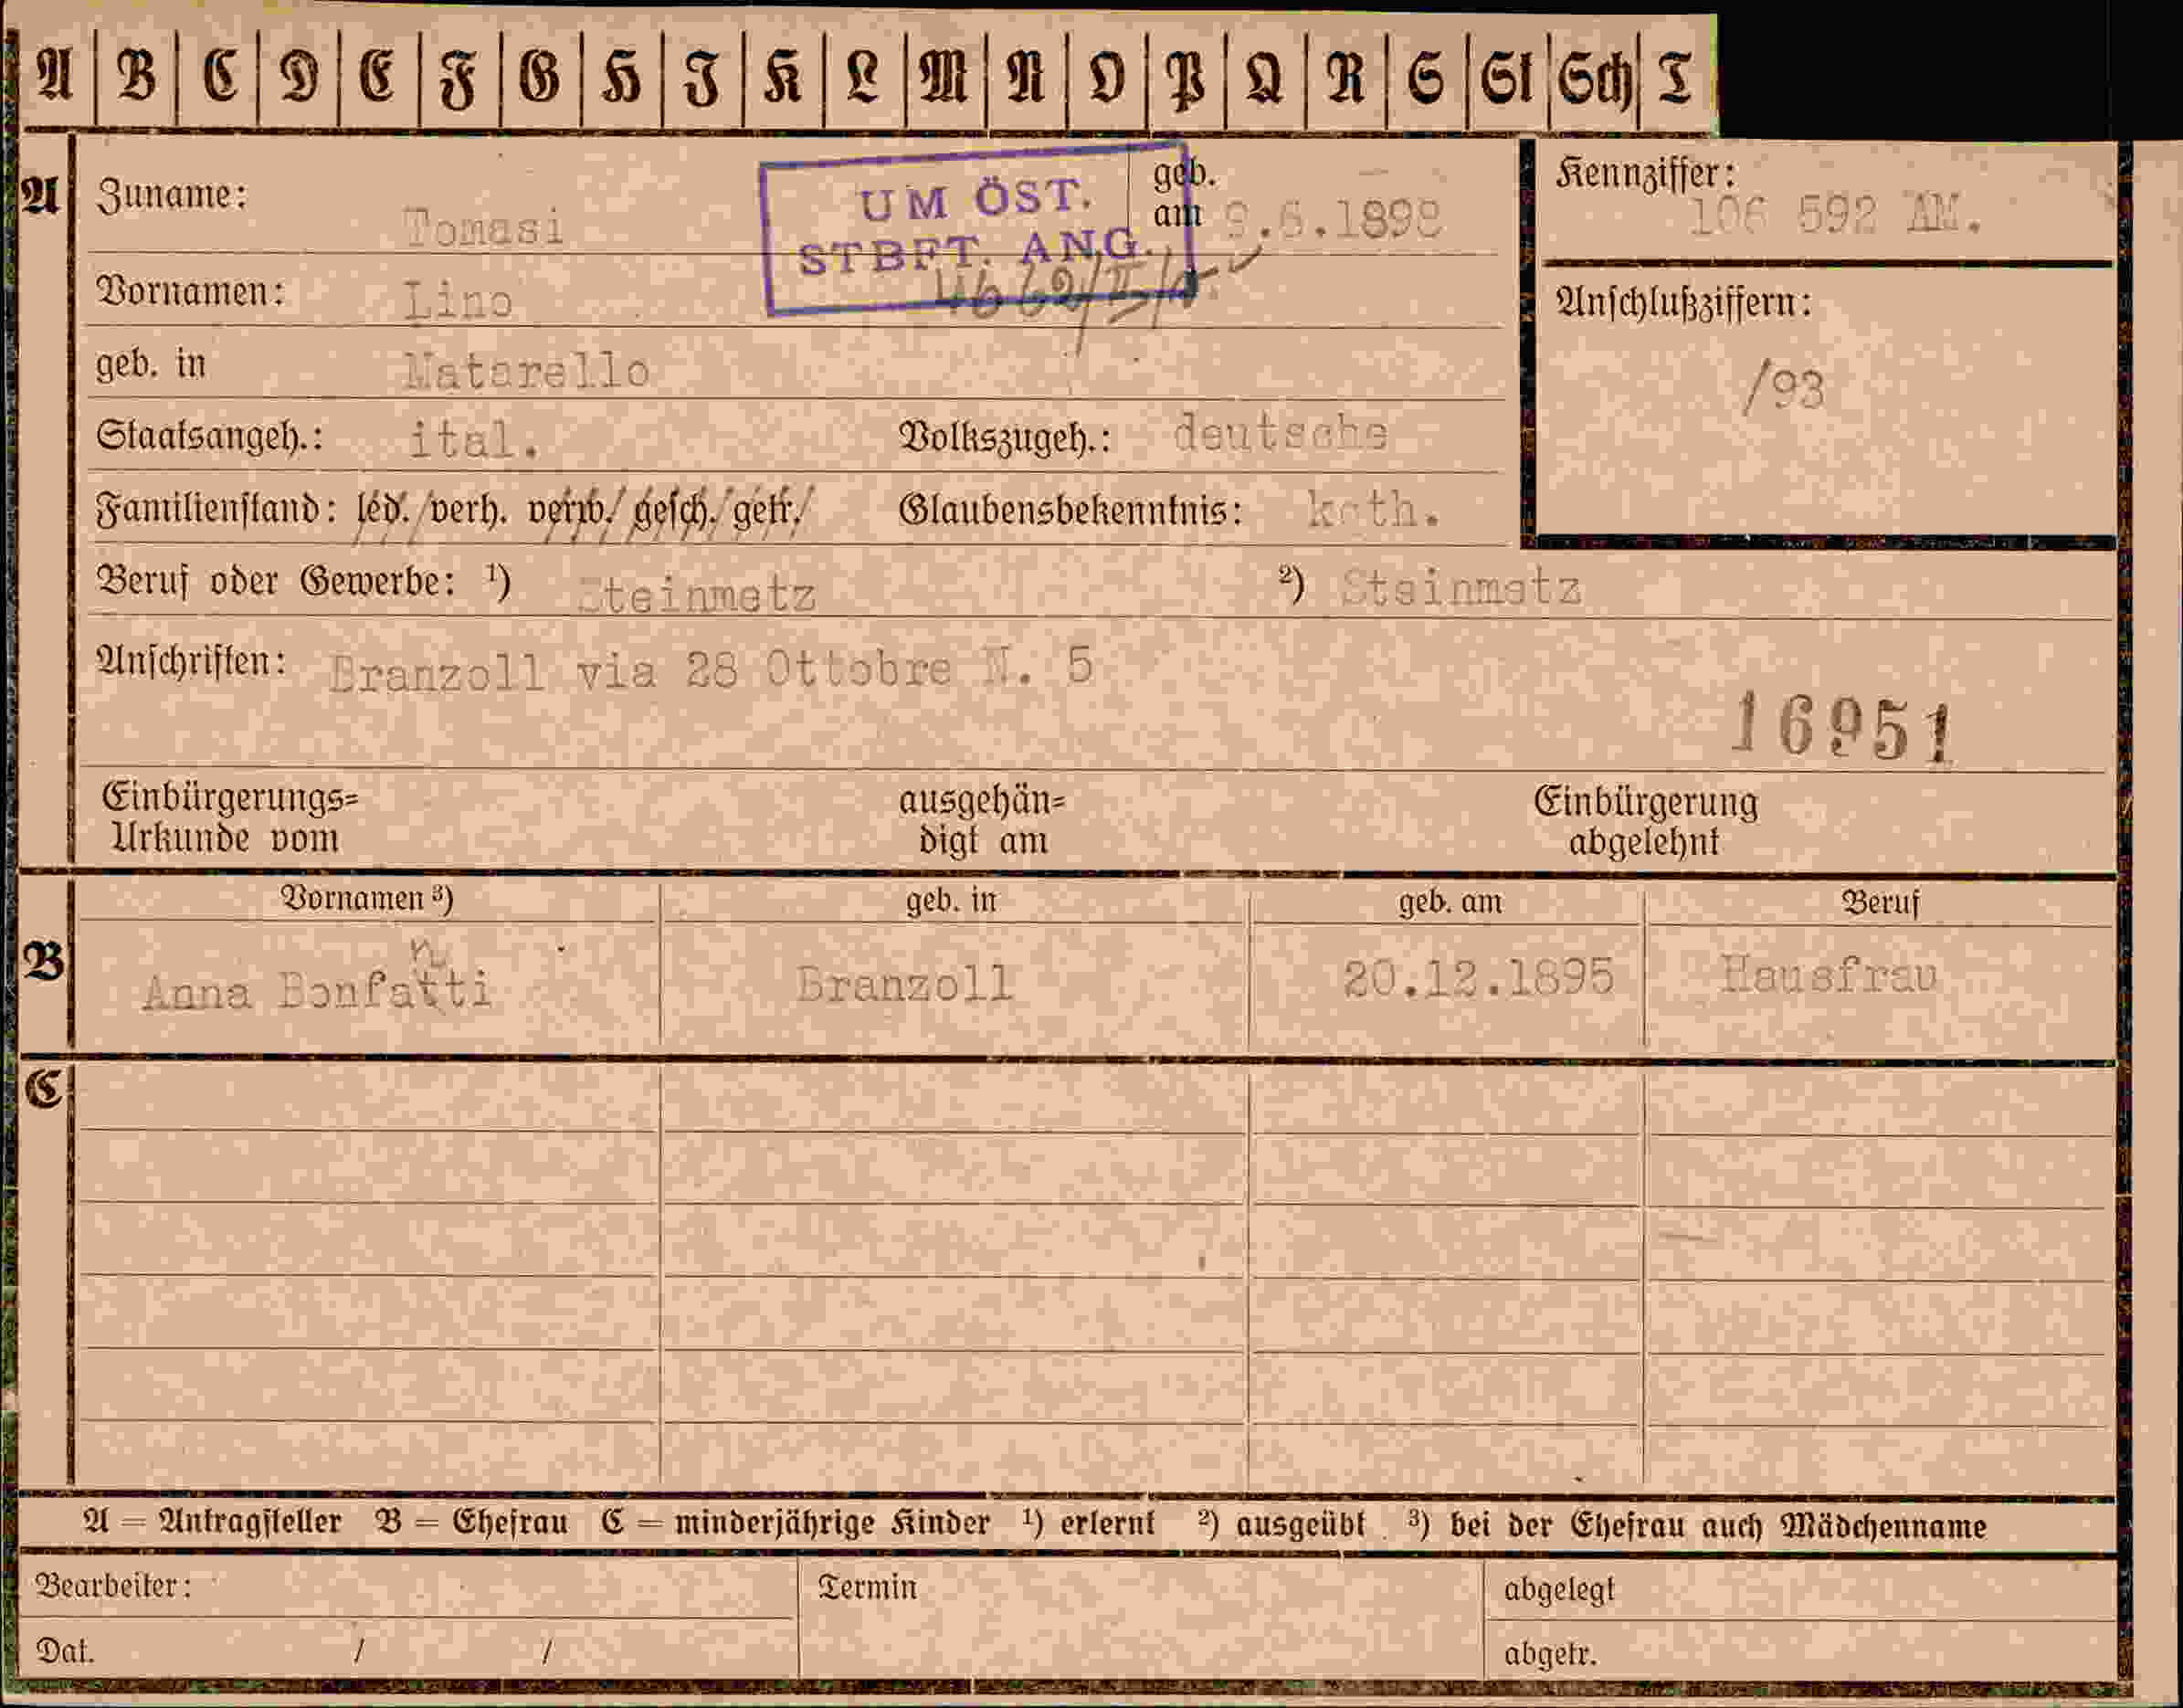 A B C D E F G H I K L M N O P Q R S St Sch T
A Zuname: Tomasi geb. am 9.6.1898 Kennziffer: 106 592 AM.
UM ÖST.
STBFT. ANG.
Vornamen: Lino Anschlußziffern:
geb. in Matarello /93
Staatsangeh.: ital. Volkszugeh.: deutsche
Familienstand: led./verh. verw./gesch./getr./ Glaubensbekenntnis: kath.
Beruf oder Gewerbe: ¹) Steinmetz ²) Steinmetz
Anschriften: Branzoll via 28 Ottobre N. 5
16951
Einbürgerungs= ausgehän= Einbürgerung
Urkunde vom digt am abgelehnt
Vornamen ³) geb. in geb. am Beruf
n
B Anna Bonfatti Branzoll 20.12.1895 Hausfrau
C
A = Antragsteller B = Ehefrau C = minderjährige Kinder ¹) erlernt ²) ausgeübt ³) bei der Ehefrau auch Mädchenname
Bearbeiter: Termin abgelegt
Dat. / / abgetr.